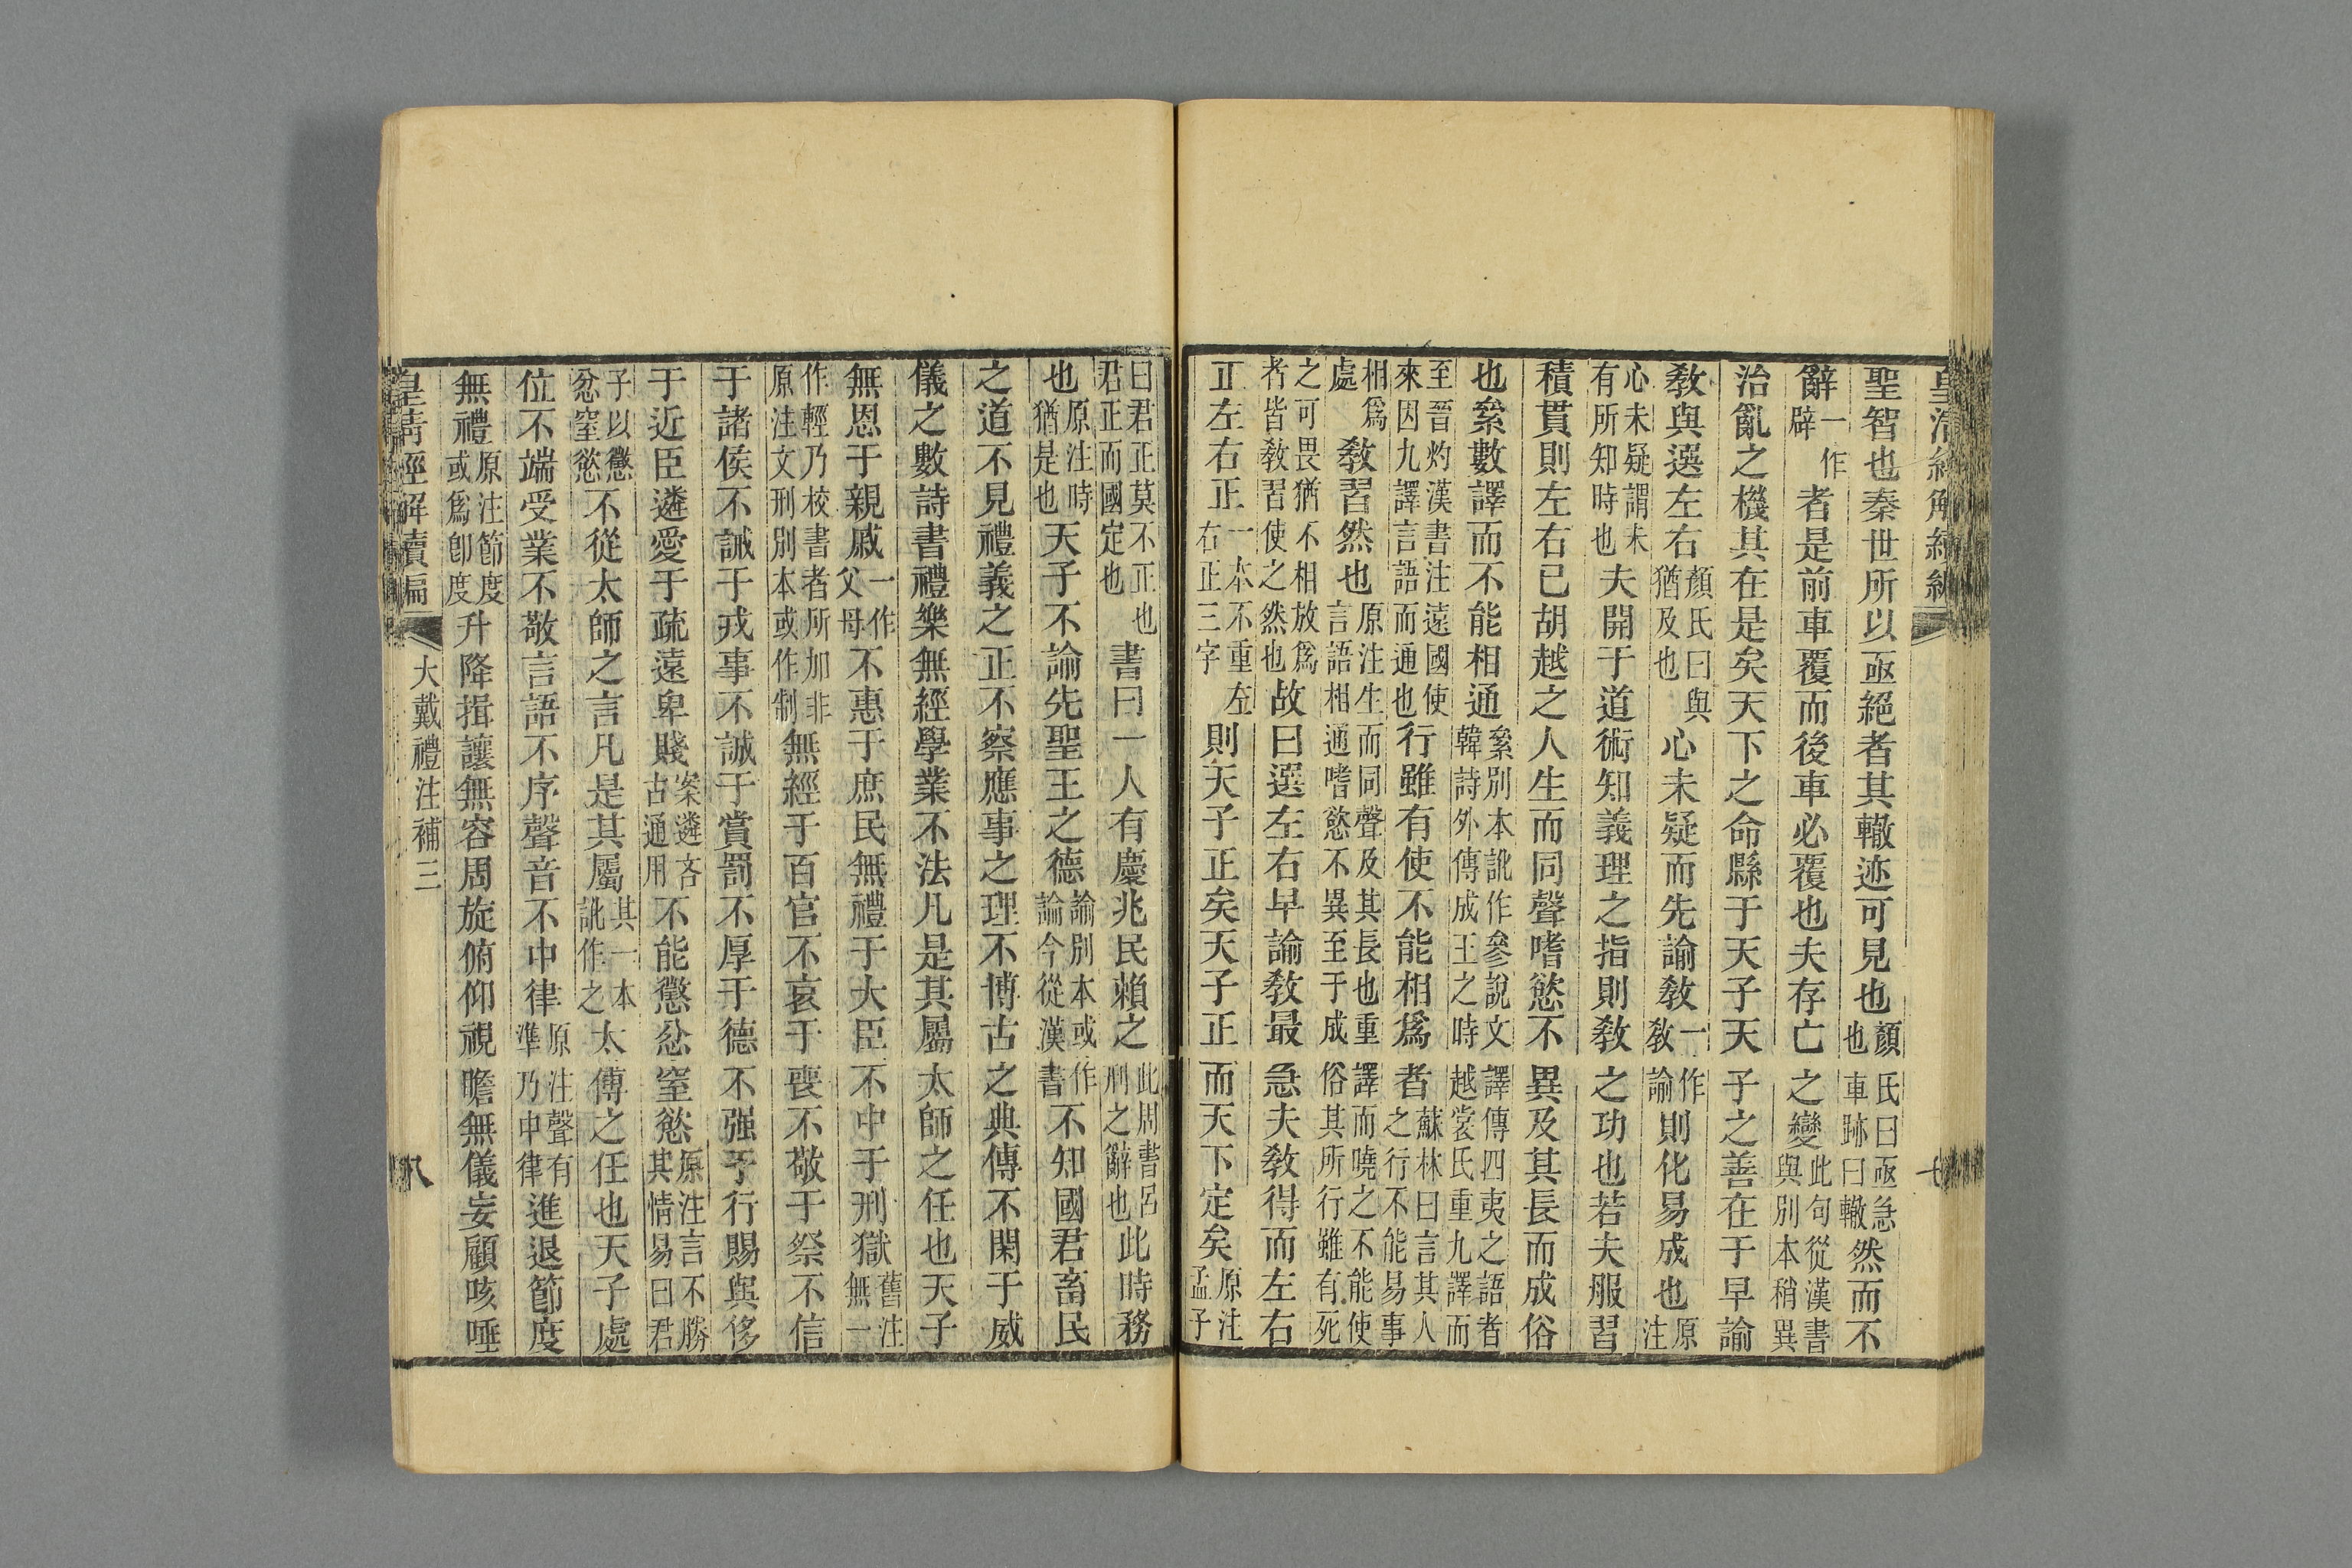 聖智也秦世所以亟絕者其轍迹可見也顏氏曰亟急也車跡曰轍然而不
辭一作辟者是前車覆而後車必覆也夫存亡之變此句從漢書與別本稍異
治亂之機其在是矣天下之命縣于天子天子之善在于早諭
敎與選左右顏氏曰與猶及也心未疑而先諭敎一作敎諭則化易成也原注
心未疑謂未有所知時也夫開于道術知義理之指則敎之功也若夫服習
積貫則左右已胡越之人生而同聲嗜慾不異及其長而成俗
也絫數譯而不能相通絫別本訛作參說文譯傳四夷之語者韓詩外傳成王之時越裳氏重九譯而
至晉灼漢書注遠國使來因九譯言語而通也行雖有使不能相爲者蘇林曰言其人之行不能易事
相爲處敎習然也原注生而同聲及其長也重譯而曉之不能使言語相通嗜慾不異至于成俗其所行雖有死
之可畏猶不相放爲者皆敎習使之然也故曰選左右早諭敎最急夫敎得而左右
正左右正一本不重左右正三字則天子正矣天子正而天下定矣原注孟子
曰君正莫不正也君正而國定也書曰一人有慶兆民賴之此周書呂刑之辭也此時務
也原注時猶是也天子不諭先聖王之德諭別本或作論今從漢書不知國君畜民
之道不見禮義之正不察應事之理不博古之典傳不閑于威
儀之數詩書禮樂無經學業不法凡是其屬太師之任也天子
無恩于親戚一作父母不惠于庶民無禮于大臣不中于刑獄舊注無一
作輕乃校書者所加非原注文刑別本或作制無經于百官不哀于喪不敬于祭不信
于諸侯不誡于戎事不誠于賞罰不厚于德不强于行賜與侈
于近臣遴愛于疏遠卑賤案遴吝古通用不能懲忿窒慾原注言不勝其情易曰君
子以懲忿窒慾不從太師之言凡是其屬其一本訛作之太傅之任也天子處
位不端受業不敬言語不序聲音不中律原注聲有準乃中律進退節度
無禮原注節度或爲卽度升降揖讓無容周旋俯仰視瞻無儀妄顧咳唾
皇清經解續編 大戴禮注補三 八